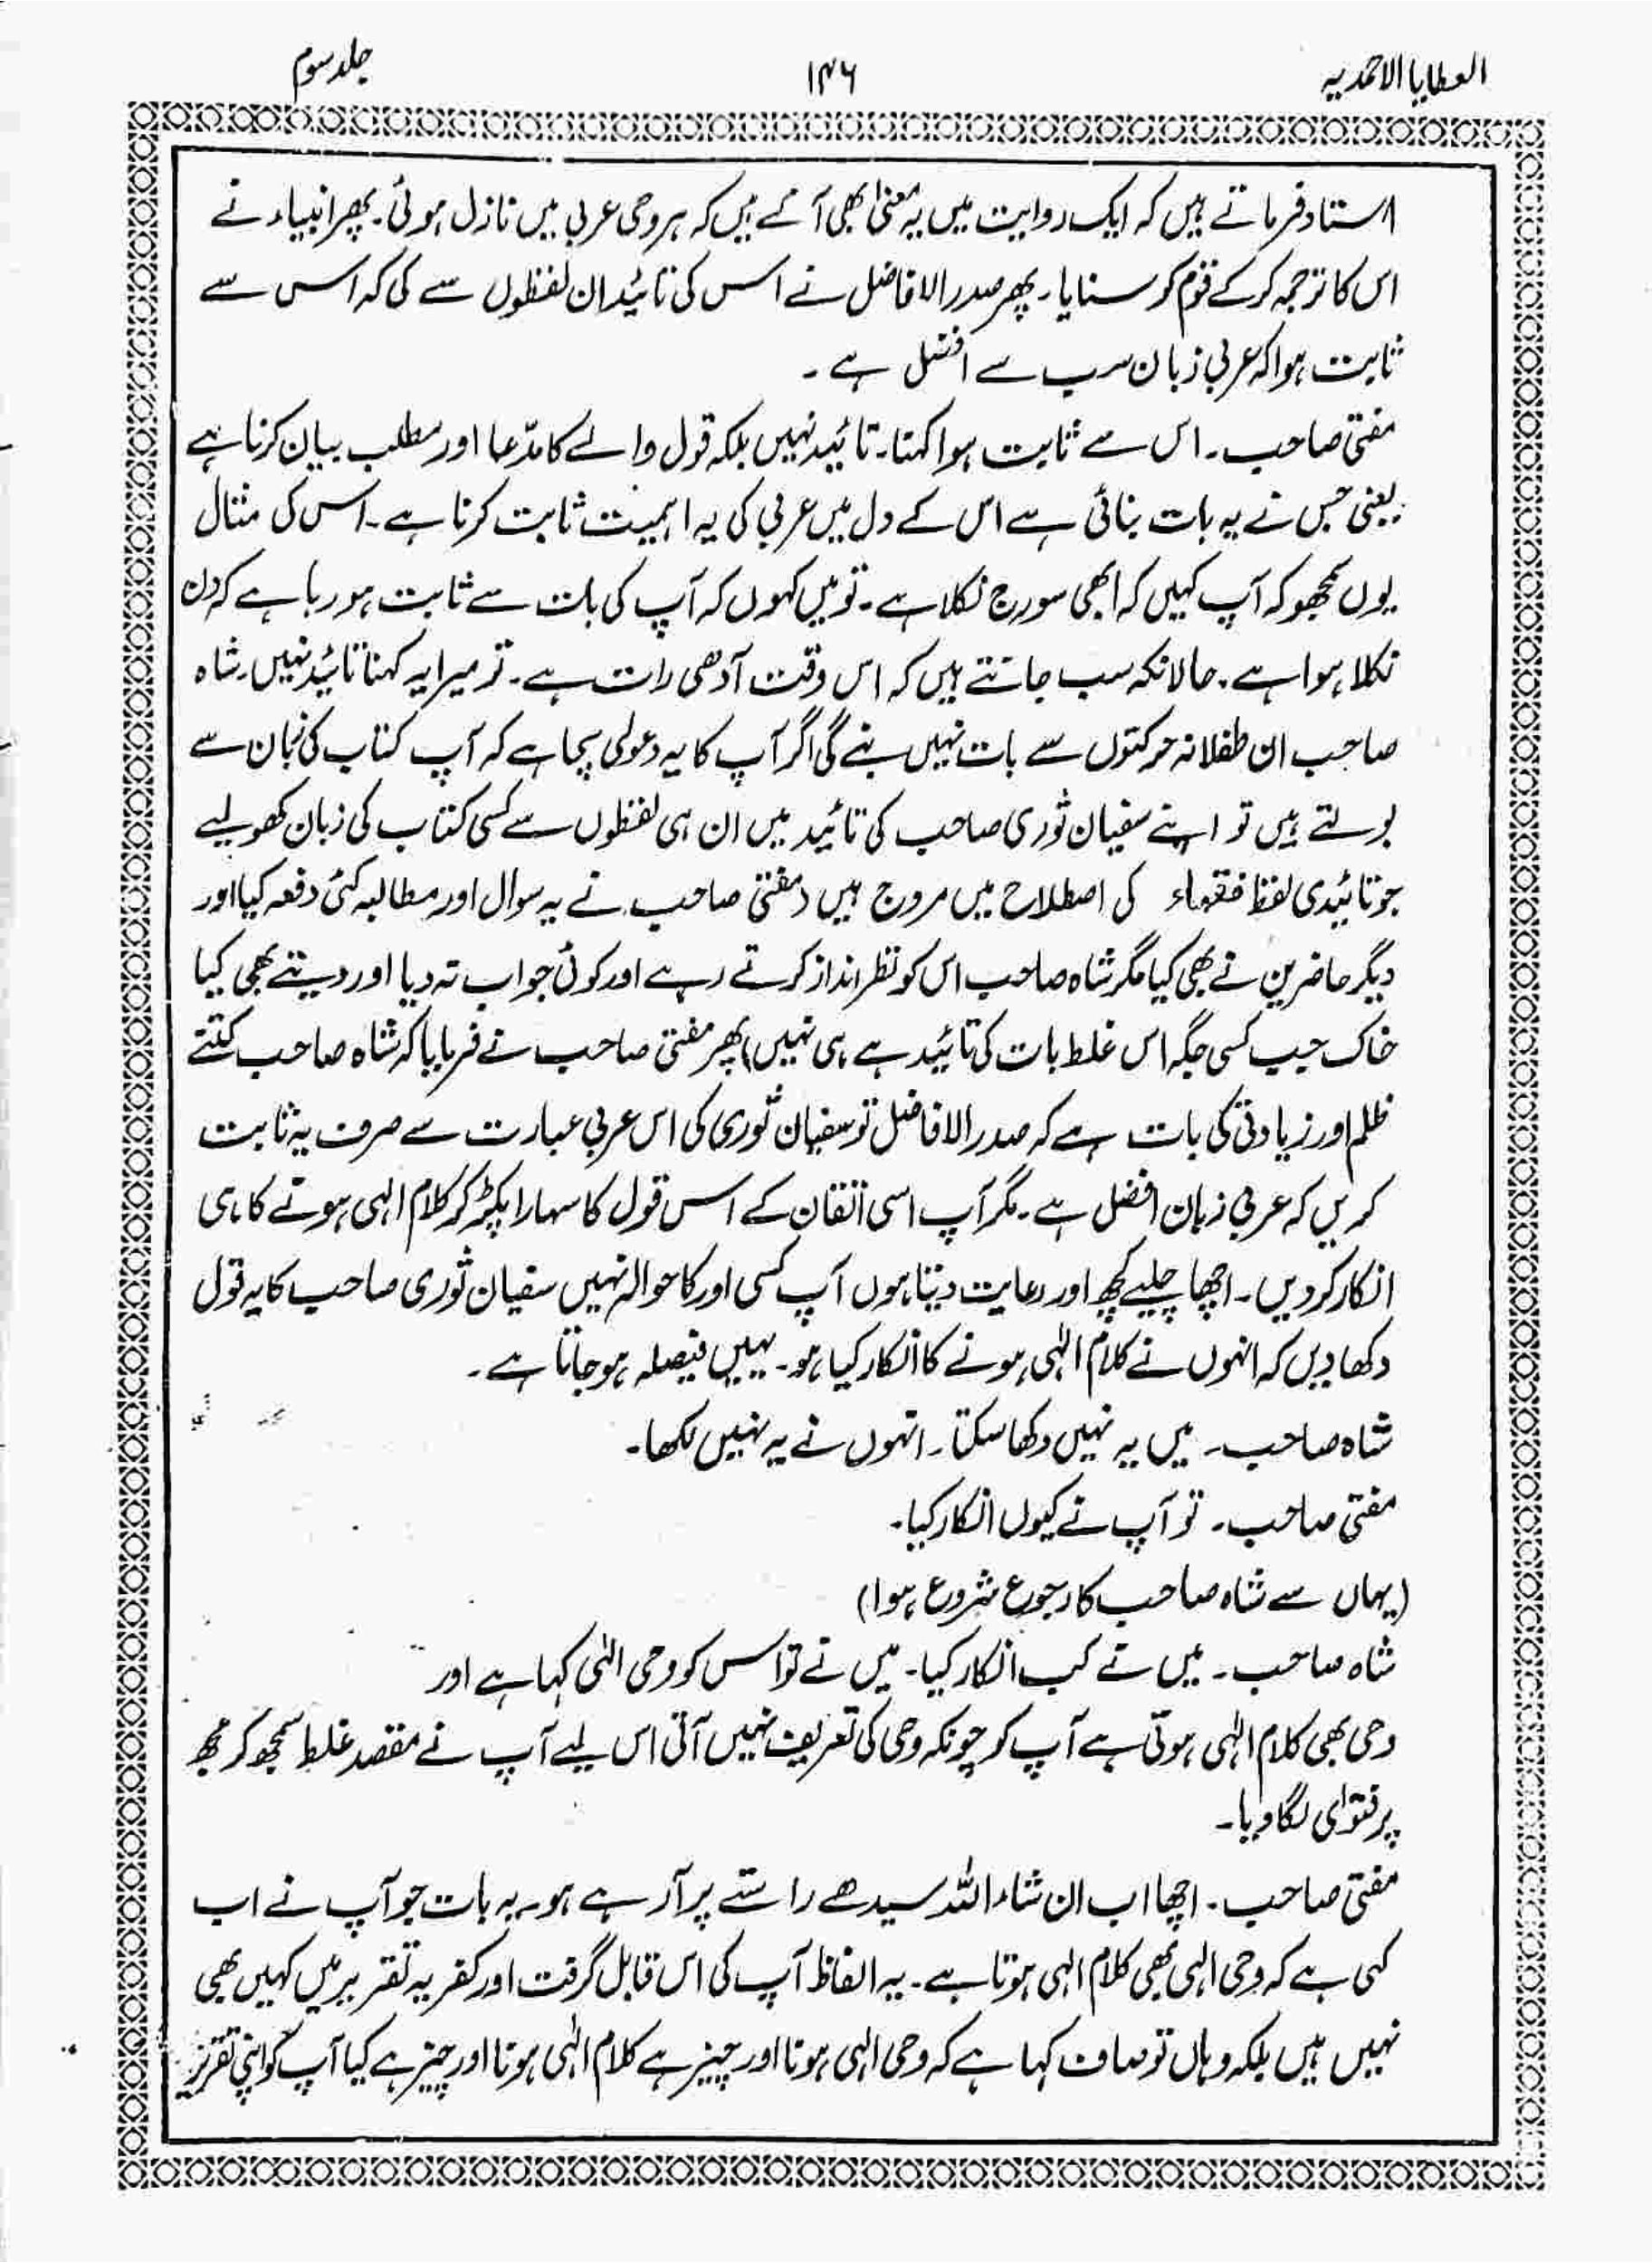 العطایا الاحمدیہ ۱۴۶ جلد سوم
استاد فرماتے ہیں کہ ایک روایت میں یہ معنیٰ بھی آئے ہیں کہ ہر وحی عربی میں نازل ہوئی۔ پھر انبیاء نے
اس کا ترجمہ کر کے قوم کو سنایا۔ پھر صدر الافاضل نے اس کی تائید ان لفظوں سے کی کہ اس سے
ثابت ہوا کہ عربی زبان سب سے افضل ہے۔
مفتی صاحب۔ اس سے ثابت ہوا کہنا۔ تائید نہیں بلکہ قول والے کا مدّعا اور مطلب بیان کرنا ہے
یعنی جس نے یہ بات بنائی ہے اس کے دل میں عربی کی یہ اہمیت ثابت کرنا ہے۔ اس کی مثال
یوں سمجھو کہ آپ کہیں کہ ابھی سورج نکلا ہے۔ تو میں کہوں کہ آپ کی بات سے ثابت ہو رہا ہے کہ دن
نکلا ہوا ہے۔ حالانکہ سب جانتے ہیں کہ اس وقت آدھی رات ہے۔ تو میرا یہ کہنا تائید نہیں۔ شاہ
صاحب ان طفلانہ حرکتوں سے بات نہیں بنے گی اگر آپ کا یہ دعویٰ سچا ہے کہ آپ کتاب کی زبان سے
بولتے ہیں تو اپنے سفیان ثوری صاحب کی تائید میں ان ہی لفظوں سے کسی کتاب کی زبان کھولیے
جو تائیدی لفظ فقہاء کی اصطلاح میں مروج ہیں (مفتی صاحب نے یہ سوال اور مطالبہ کئی دفعہ کیا اور
دیگر حاضرین نے بھی کیا مگر شاہ صاحب اس کو نظر انداز کرتے رہے اور کوئی جواب نہ دیا اور دیتے بھی کیا
خاک جب کسی جگہ اس غلط بات کی تائید ہے ہی نہیں) پھر مفتی صاحب نے فرمایا کہ شاہ صاحب کتنے
ظلم اور زیادتی کی بات ہے کہ صدر الافاضل تو سفیان ثوری کی اس عربی عبارت سے صرف یہ ثابت
کریں کہ عربی زبان افضل ہے۔ مگر آپ اسی اتقان کے اس قول کا سہارا پکڑ کر کلام الہی ہونے کا ہی
انکار کر دیں۔ اچھا چلیے کچھ اور رعایت دیتا ہوں آپ کسی اور کا حوالہ نہیں سفیان ثوری صاحب کا یہ قول
دکھا دیں کہ انہوں نے کلام الٰہی ہونے کا انکار کیا ہو۔ یہیں فیصلہ ہو جاتا ہے۔
شاہ صاحب۔ میں یہ نہیں دکھا سکتا۔ انہوں نے یہ نہیں لکھا۔
مفتی صاحب۔ تو آپ نے کیوں انکار کیا۔
(یہاں سے شاہ صاحب کا رجوع شروع ہوا)
شاہ صاحب۔ میں نے کب انکار کیا۔ میں نے تو اس کو وحی الٰہی کہا ہے اور
وحی بھی کلام الٰہی ہوتی ہے آپ کو چونکہ وحی کی تعریف نہیں آتی اس لیے آپ نے مقصد غلط سمجھ کر مجھ
پر فتوٰی لگا دیا۔
مفتی صاحب۔ اچھا اب ان شاء اللہ سیدھے راستے پر آ رہے ہو۔ یہ بات جو آپ نے اب
کہی ہے کہ وحی الہی بھی کلام الہی ہوتا ہے۔ یہ الفاظ آپ کی اس قابل گرفت اور کفریہ تقریر میں کہیں بھی
نہیں ہیں بلکہ وہاں تو صاف کہا ہے کہ وحی الہی ہونا اور چیز ہے کلام الٰہی ہونا اور چیز ہے کیا آپ کو اپنی تقریر